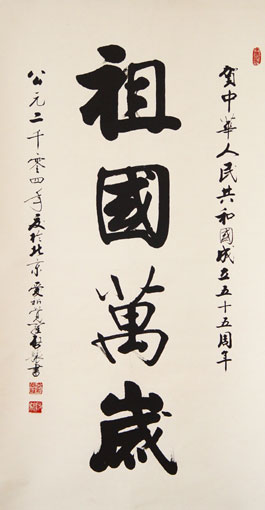 賀中華人民共和國成立五十五周年
祖國萬歲
公元二千零四年夏於北京 書